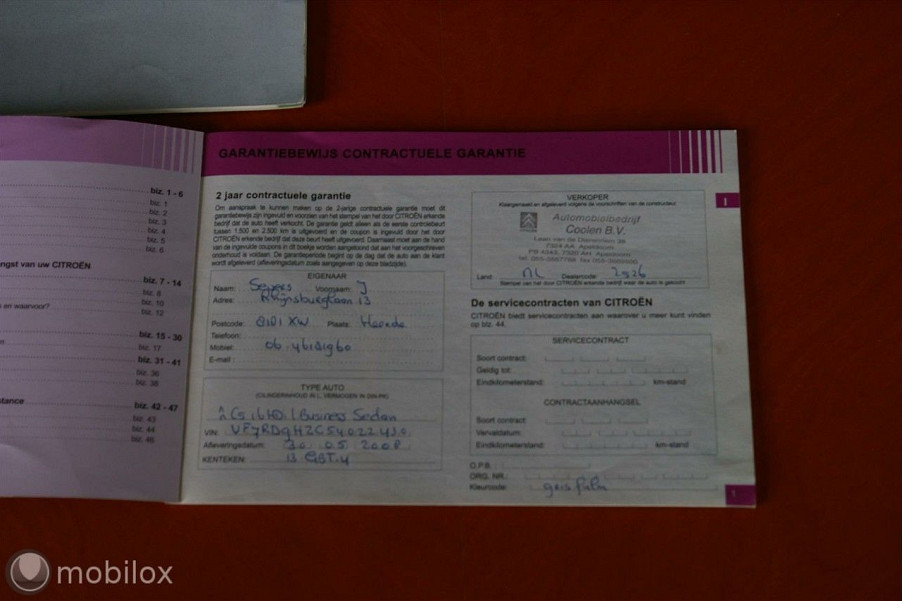 biz. 1 - 6
biz. 1
biz. 2
biz. 3
biz. 4
biz. 5
biz. 6
ngst van uw CITROËN
biz. 7 - 14
biz. 8
en waarvoor?
biz. 10
biz. 12
biz. 15 - 30
biz. 17
biz. 31 - 41
biz. 36
biz. 38
stance
biz. 42 - 47
biz. 43
biz. 44
biz. 46
GARANTIEBEWIJS CONTRACTUELE GARANTIE
2 jaar contractuele garantie
Om aanspraak te kunnen maken op de 2-jarige contractuele garantie moet dit
garantiebewijs zijn ingevuld en voorzien van het stempel van het door CITROËN erkende
bedrijf dat de auto heeft verkocht. De garantie geldt alleen als de eerste controlebeurt
tussen 1.500 en 2.500 km is uitgevoerd en de coupon is ingevuld door het door
CITROËN erkende bedrijf dat deze beurt heeft uitgevoerd. Daarnaast moet aan de hand
van de ingevulde coupons in dit boekje worden aangetoond dat aan het voorgeschreven
onderhoud is voldaan. De garantieperiode begint op de dag dat de auto aan de klant
wordt afgeleverd (afleveringsdatum zoals aangegeven op deze bladzijde).
EIGENAAR
Naam: Voornaam: J
Adres: 13
Postcode: XW Plaats: Heerde
Telefoon:
Mobiel:
E-mail :
TYPE AUTO
(CILINDERINHOUD IN L, VERMOGEN IN DIN/PK)
Business Sedan
VIN:
Afleveringsdatum: 30 05 2008
KENTEKEN:
VERKOPER
Klaargemaakt en afgeleverd volgens de voorschriften van de constructeur
Automobielbedrijf
Coolen B.V.
7324 AA Apeldoorn
Land: NL Dealercode: 2526
Stempel van het door CITROËN erkende bedrijf waar de auto is gekocht
I
De servicecontracten van CITROËN
CITROËN biedt servicecontracten aan waarover u meer kunt vinden
op blz. 44.
SERVICECONTRACT
Soort contract:
Geldig tot:
Eindkilometerstand: km-stand
CONTRACTAANHANGSEL
Soort contract:
Vervaldatum:
Eindkilometerstand: km-stand
O.P.B.
ORG. NR.:
Kleurcode:
1
mobilox